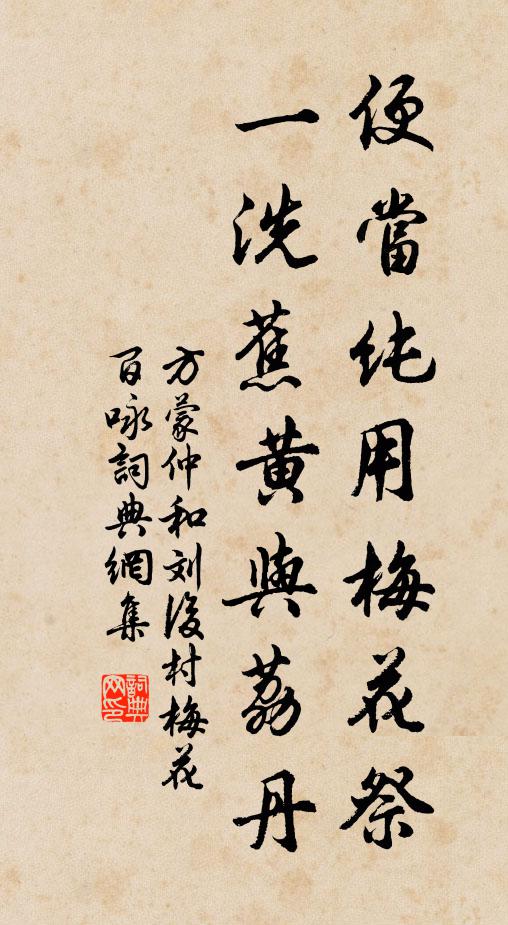 便當纯用梅花祭
一洗蕉黄與荔丹
方蒙仲和刘後村梅花
百咏詞典網集
詞典网印